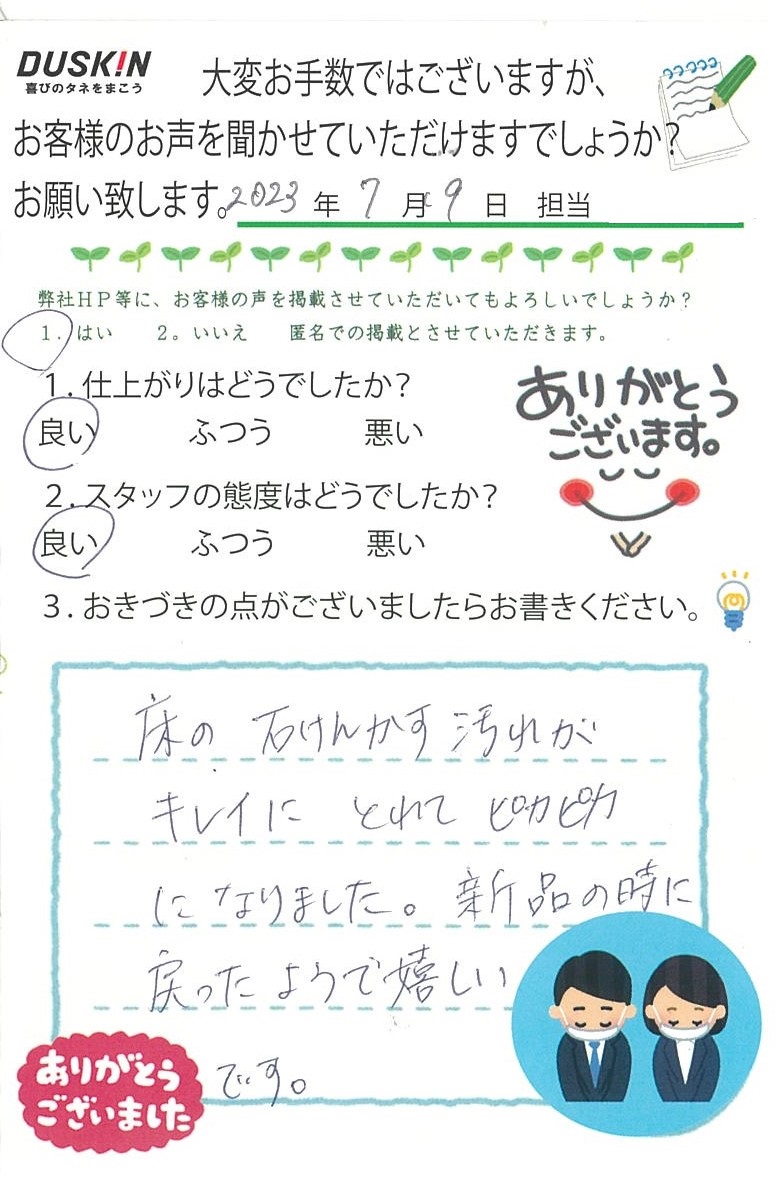 DUSK!N
喜びのタネをまこう
大変お手数ではございますが、
お客様のお声を聞かせていただけますでしょうか?
お願い致します。2023 年 7 月 9 日 担当
弊社HP等に、お客様の声を掲載させていただいてもよろしいでしょうか?
1. はい 2。いいえ 匿名での掲載とさせていただきます。
1. 仕上がりはどうでしたか?
良い ふつう 悪い
ありがとう
ございます。
2. スタッフの態度はどうでしたか?
良い ふつう 悪い
3. おきづきの点がございましたらお書きください。
床の 石けんかす 汚れが
キレイに とれて ピカピカ
に なりました。新品の時に
戻ったようで嬉しい
です。
ありがとう
ございました